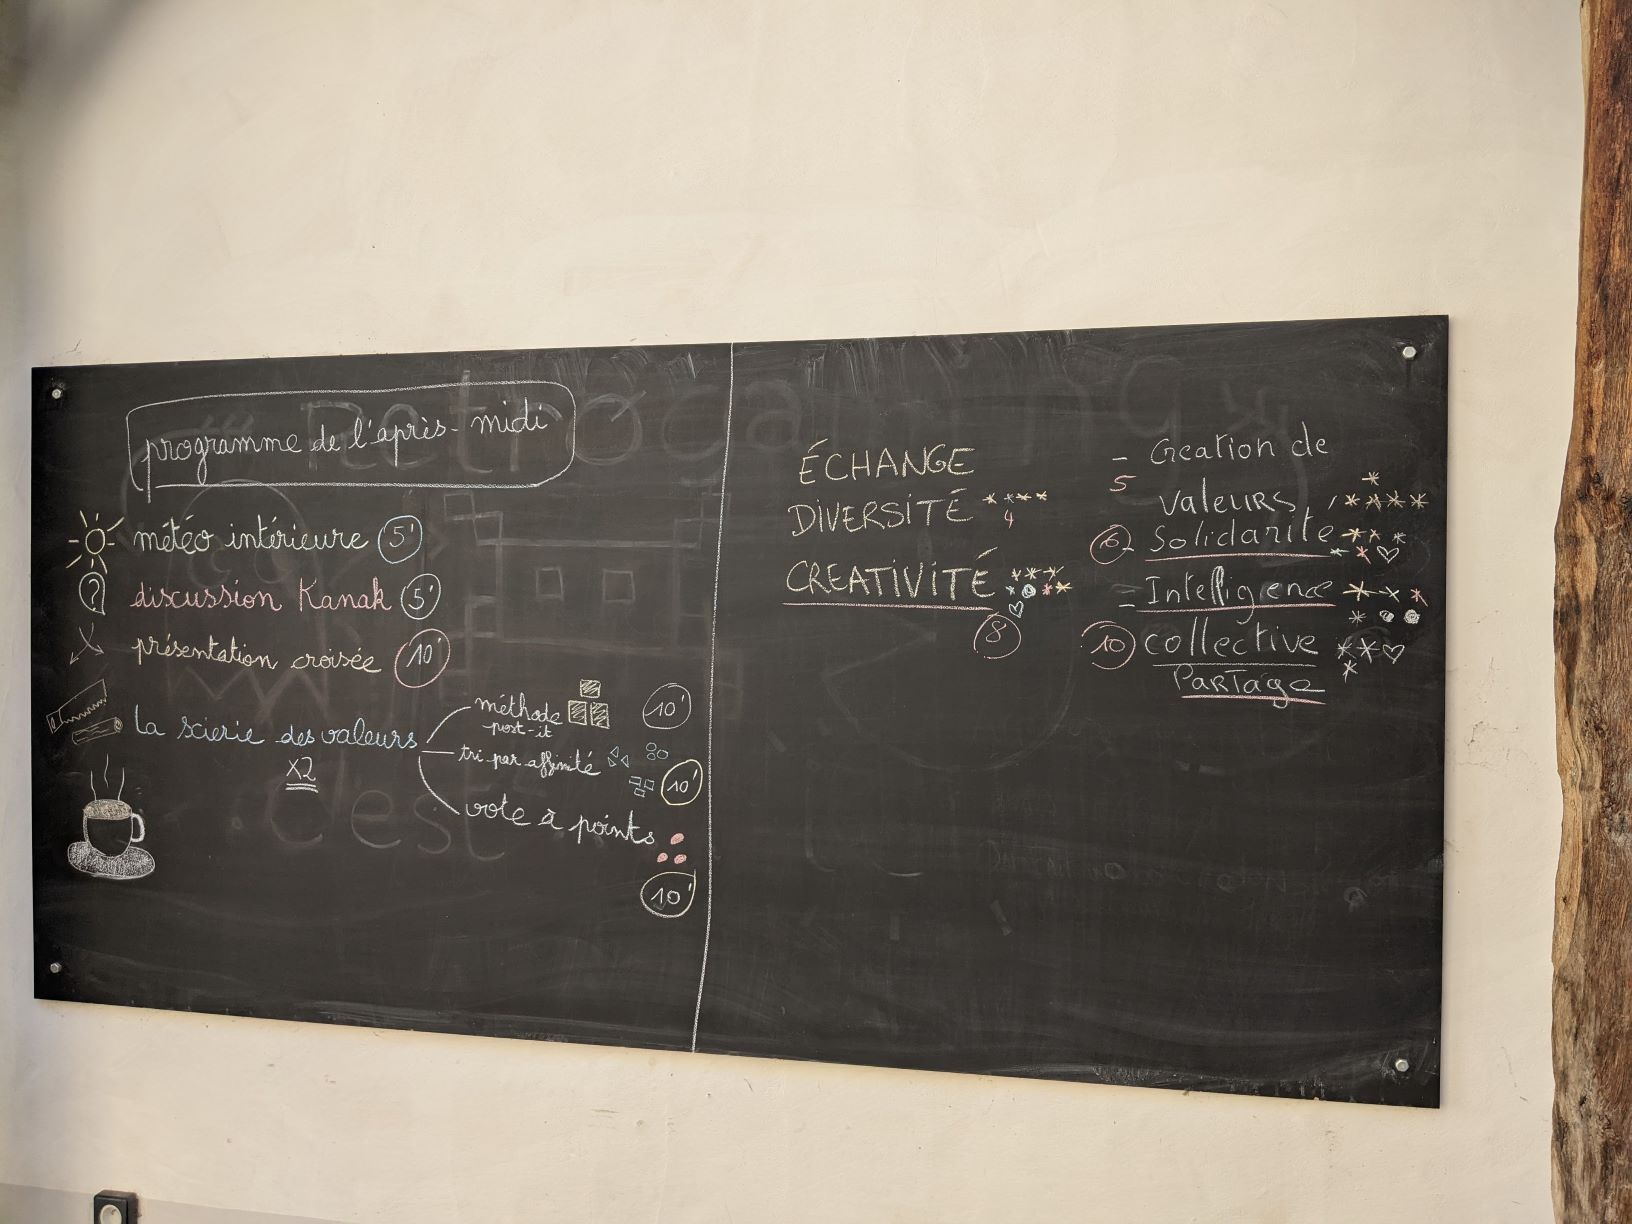 programme de l'après-midi
météo intérieure 5'
? discussion Kanak 5'
présentation croisée 10'
la scierie des valeurs
X2
méthode
post-it
10'
tri par affinité
10'
vote à points
10'
ÉCHANGE
DIVERSITÉ
4
CREATIVITÉ
8
- Creation de
5
valeurs
6 - Solidarité
- Intelligence
10 collective
Partage
Retrocamping
c'est